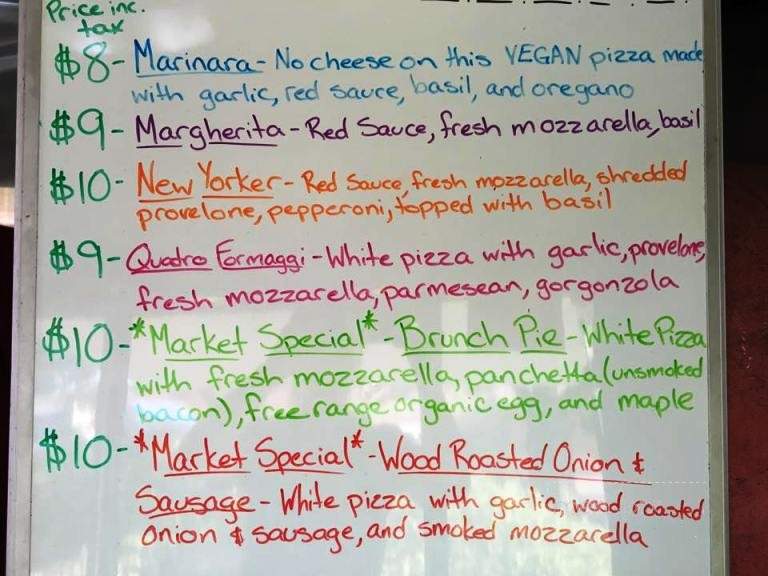 Price inc.
tax
$8- Marinara - No cheese on this VEGAN pizza made
with garlic, red sauce, basil, and oregano
$9- Margherita - Red Sauce, fresh mozzarella, basil
$10- New Yorker - Red Sauce, fresh mozzarella, shredded
provelone, pepperoni, topped with basil
$9- Quatro Formaggi - White pizza with garlic, provelone,
fresh mozzarella, parmesean, gorgonzola
$10- *Market Special* - Brunch Pie - White Pizza
with fresh mozzarella, panchetta (unsmoked
bacon), free range organic egg, and maple
$10- *Market Special* - Wood Roasted Onion &
Sausage - White pizza with garlic, wood roasted
onion & sausage, and smoked mozzarella